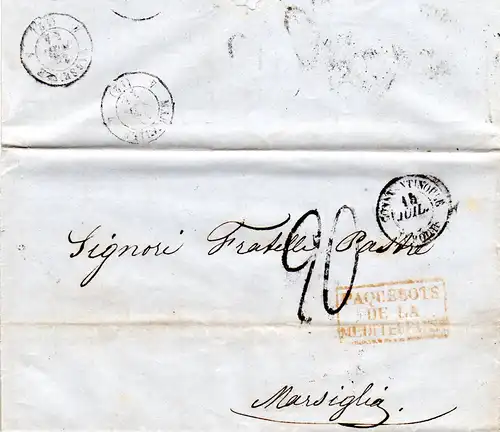 CONSTANTINOPLE
15
JUIL.
Signori Fratelli Pastré
90
PAQUEBOTS
DE LA
MEDITERR
Marsiglia